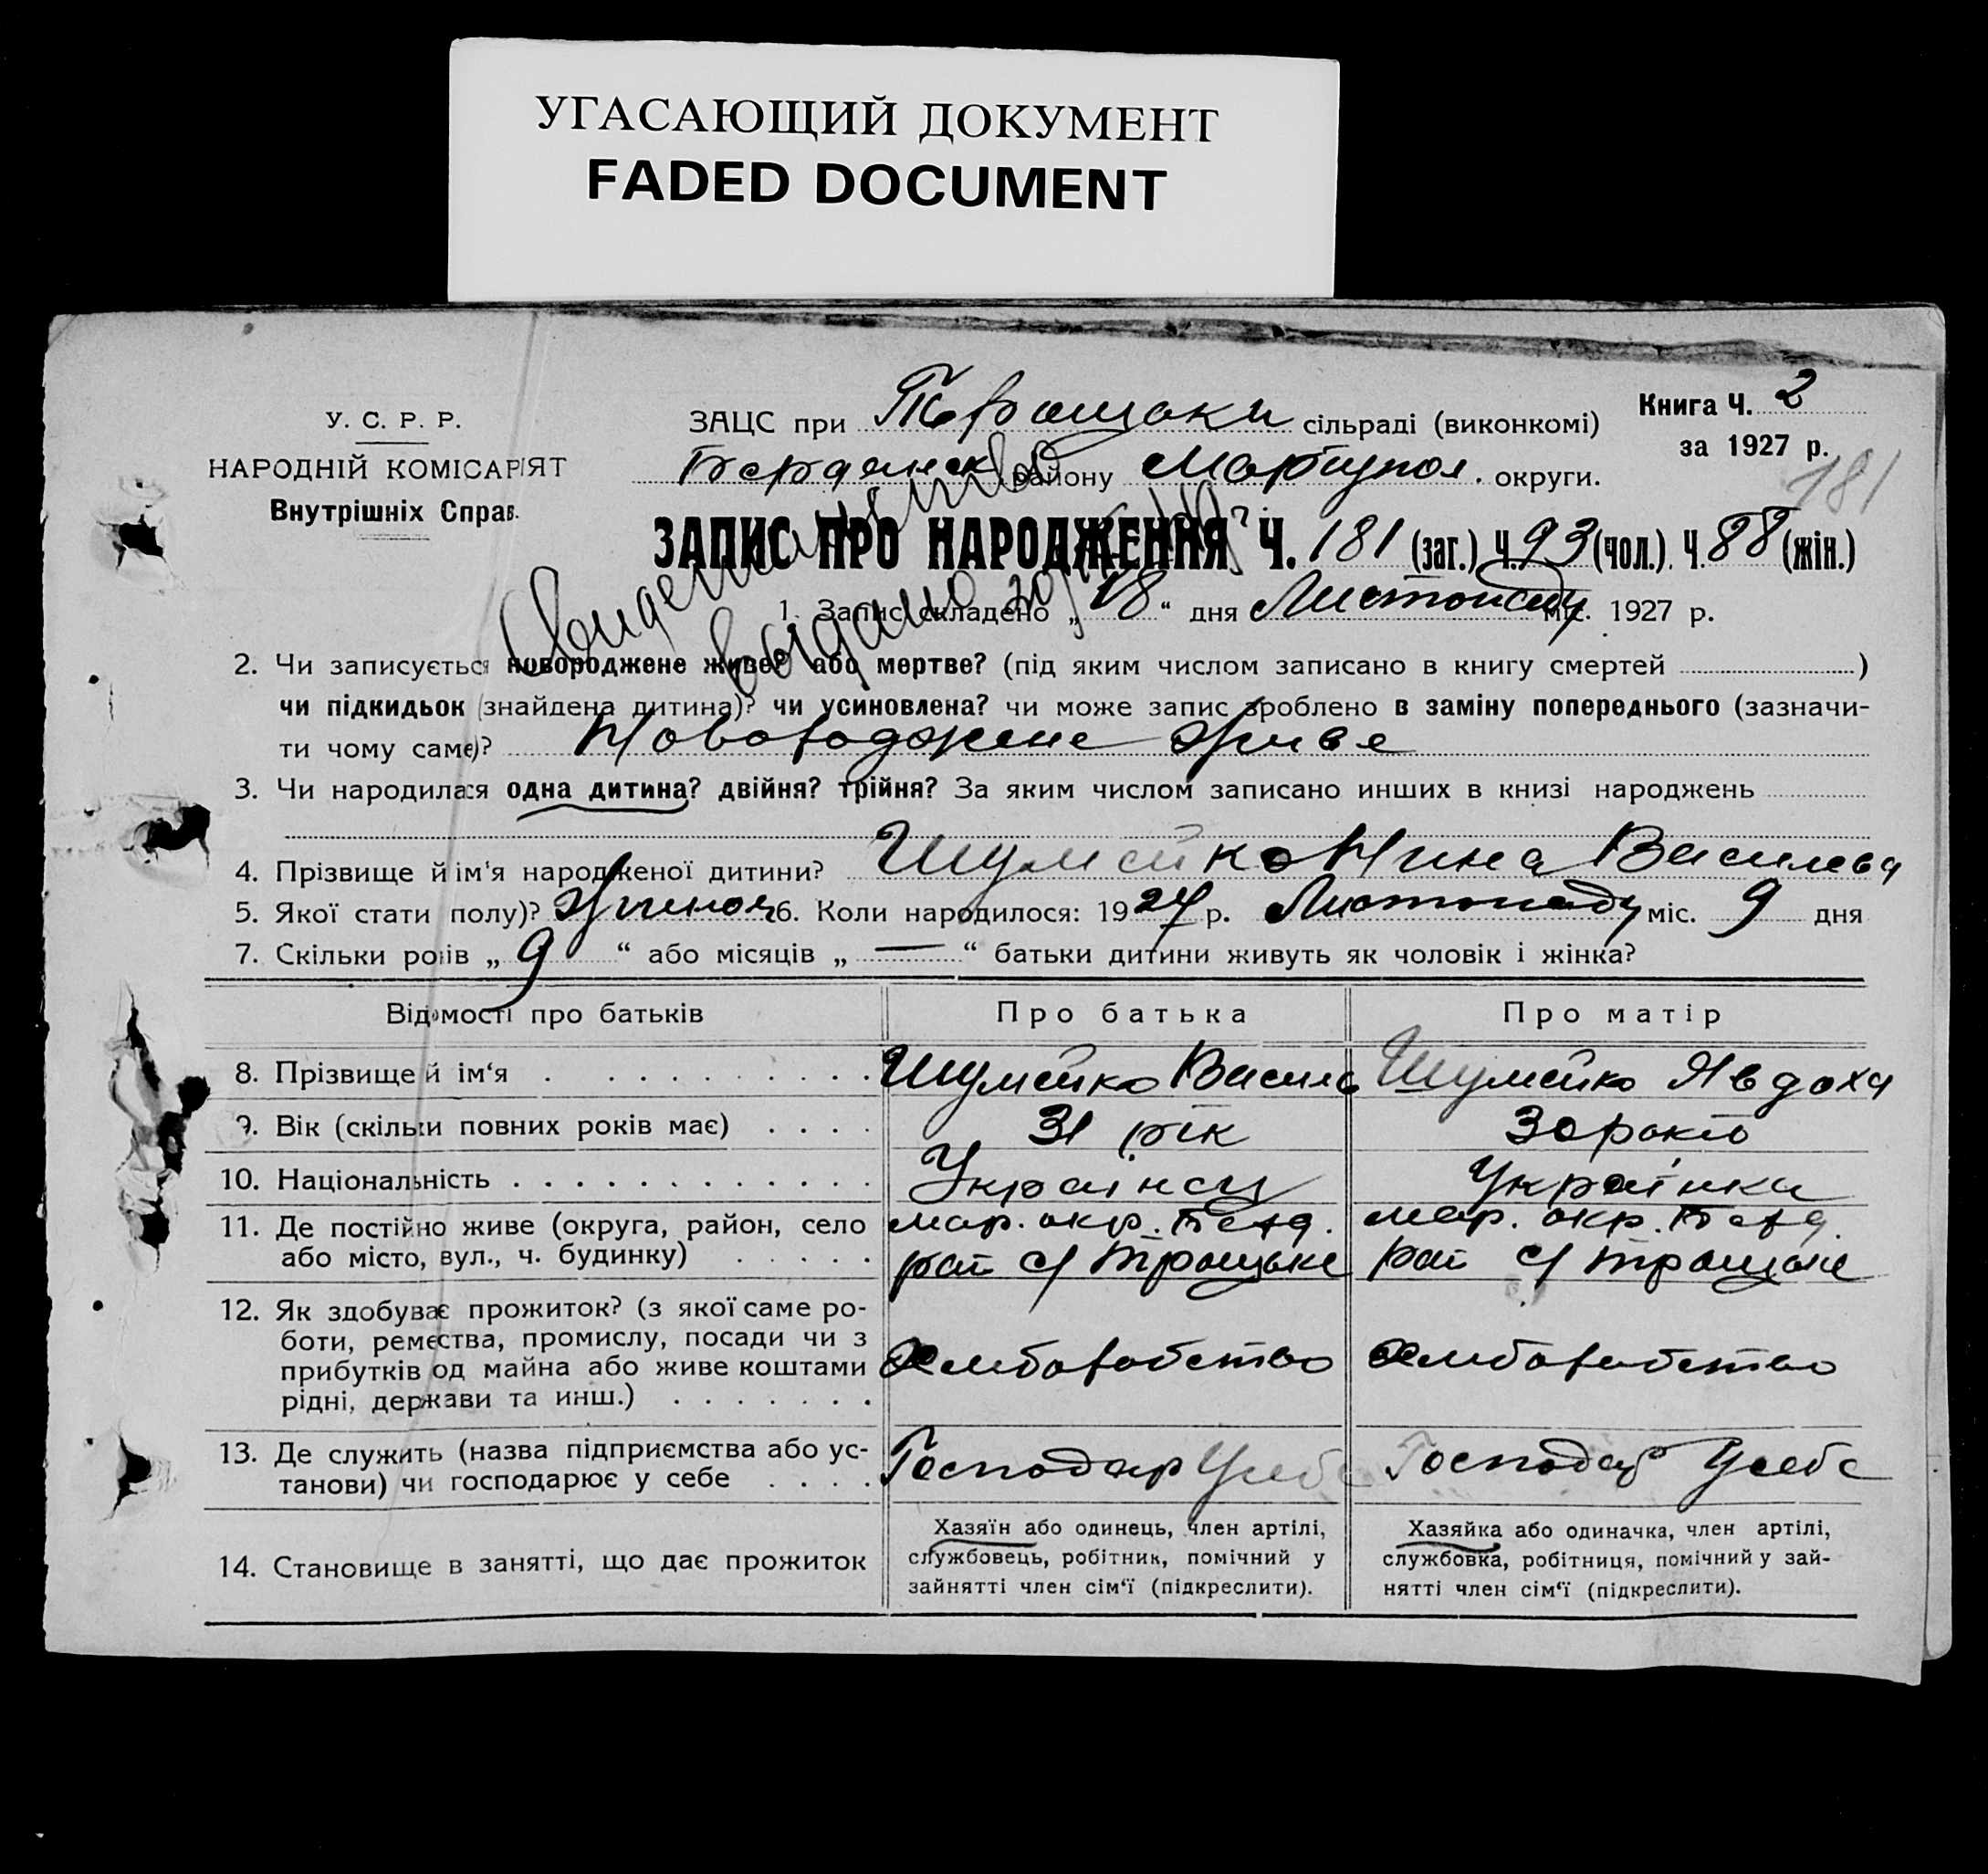 УГАСАЮЩИЙ ДОКУМЕНТ
FADED DOCUMENT
У. С. Р. Р.
НАРОДНІЙ КОМІСАРІЯТ
Внутрішніх Справ.
ЗАЦС при сільраді (виконкомі)
Бердянськ району Маріупол. округи.
Книга Ч. 2
за 1927 р.
181
ЗАПИС ПРО НАРОДЖЕННЯ Ч. 181 (заг.) Ч. 93 (чол.). Ч. 88 (жін.)
1. Запис складено „ 18 “ дня Листопаду міс. 1927 р.
2. Чи записується новороджене живе? або мертве? (під яким числом записано в книгу смертей )
чи підкидьок (знайдена дитина)? чи усиновлена? чи може запис зроблено в заміну попереднього (зазначи-
ти чому саме)? Новороджене живе
3. Чи народилася одна дитина? двійня? трійня? За яким числом записано инших в книзі народжень
4. Прізвище й ім'я народженої дитини? Шумейко Нина Василева
5. Якої стати полу)? Жиночя 6. Коли народилося: 1927 р. Листопаду міс. 9 дня
7. Скільки років „ 9 “ або місяців „ — “ батьки дитини живуть як чоловік і жінка?
Відомості про батьків Про батька Про матір
8. Прізвище й ім‘я Шумейко Василь Шумейко Явдоха
9. Вік (скільки повних років має) 31 рік 30 років
10. Національність Українец Українка
11. Де постійно живе (округа, район, село мар. окр. Берд. мар. окр. Берд.
або місто, вул., ч. будинку) рай с/ Трощьке рай с/ Трощьке
12. Як здобуває прожиток? (з якої саме ро-
боти, ремества, промислу, посади чи з
прибутків од майна або живе коштами Хлиборобство Хлиборобство
рідні, держави та инш.)
13. Де служить (назва підприємства або ус- Господар Усебе Господар Усебе
танови) чи господарює у себе
14. Становище в занятті, що дає прожиток
Хазяїн або одинець, член артілі,
службовець, робітник, помічний у
зайнятті член сім‘ї (підкреслити).
Хазяйка або одиначка, член артілі,
службовка, робітниця, помічний у зай-
нятті член сім‘ї (підкреслити).